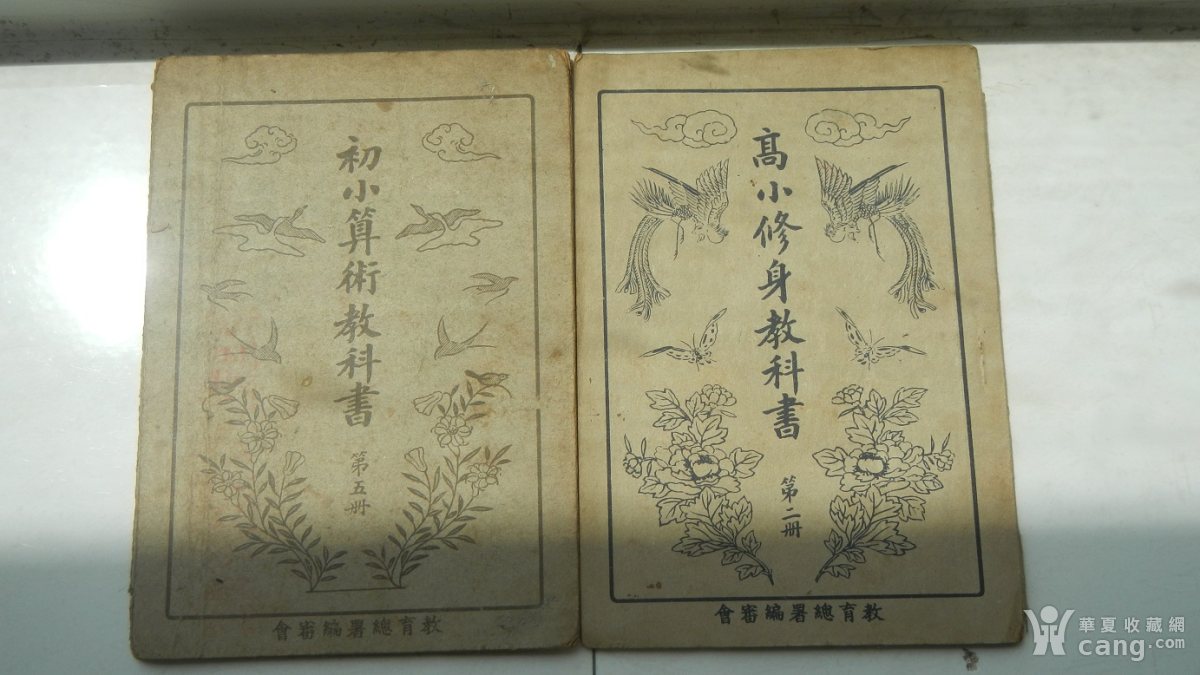 初小算術教科書
第五册
會審編署總育教
高小修身教科書
第二册
會審編署總育教
華夏收藏網
cang.com